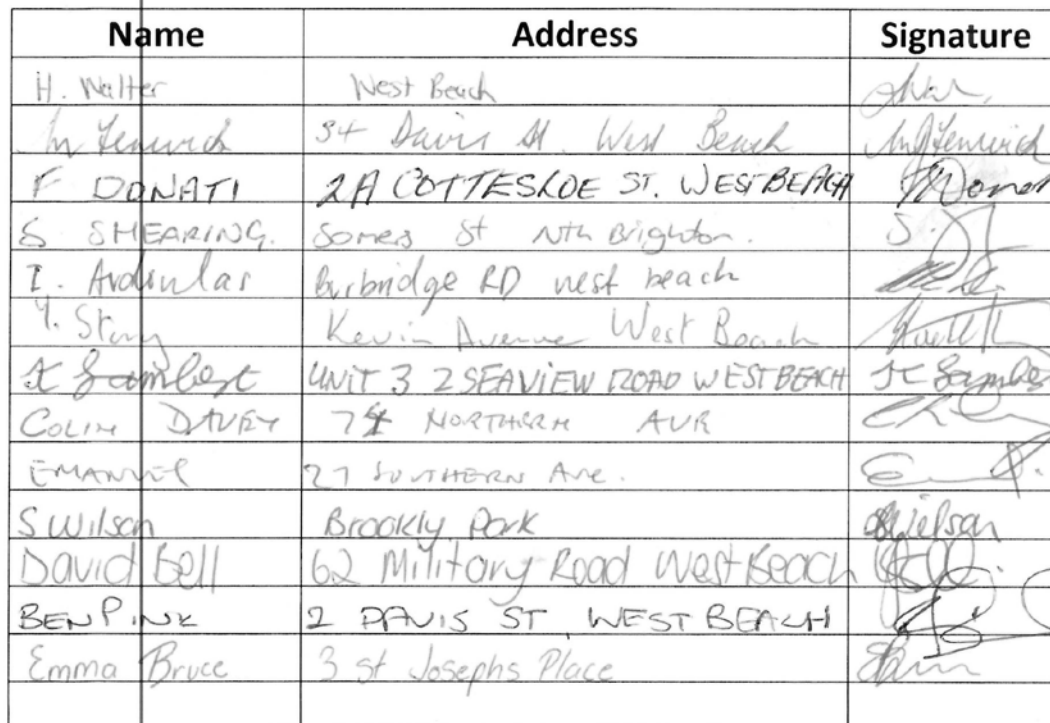 Name Address Signature
H. Walter West Beach
M Fenwick 34 Davis St. West Beach M Fenwick
F DONATI 2A COTTESLOE ST. WESTBEACH
S SHEARING. Somers St Nth Brighton. S.
I. Burbridge RD west beach
Y. Kevin Avenue West Beach
UNIT 3 2 SEAVIEW ROAD WEST BEACH
COLIN DAVEY 74 NORTHERN AVE
EMANUEL 27 SOUTHERN AVE.
S Wilson Brookly Park SWilson
David Bell 62 Military Road West Beach
BEN PINK 2 DAVIS ST WEST BEACH
Emma Bruce 3 St Josephs Place